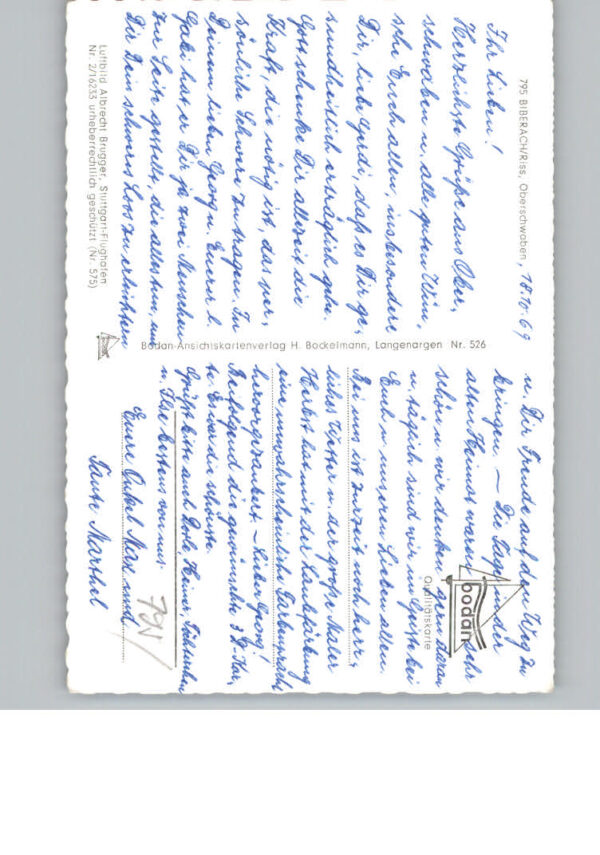 795 BIBERACH/Riss, Oberschwaben, 18.10.69
Ihr Lieben!
Herzlichste Grüße aus Ober,
schwaben u. alle guten Wün,
sche Euch allen, insbesondere
Dir, liebe Gerdi, daß es Dir ge,
sundheitlich erträglich gehe.
Gott schenke Dir allezeit die
Kraft, die nötig ist, das per,
sönliche Schwere zu tragen. In
Deinem lieben Georg u. Eurer l.
Gabi hat er Dir ja zwei Menschen
zur Seite gestellt, die alles tun, um
Dir Dein schweres Los zu erleichtern
Luftbild Albrecht Brugger, Stuttgart-Flughafen
Nr. 2/16233 urheberrechtlich geschützt (Nr. 575)
Bodan-Ansichtskartenverlag H. Bockelmann, Langenargen Nr. 526
bodan
Qualitätskarte
u. Dir Freude auf den Weg zu
bringen. – Die Tage in der
alten Heimat waren sehr
schön u. wir denken gern daran
u. täglich sind wir im Geiste bei
Euch u. unseren Lieben allen.
Bei uns ist zurzeit noch herr,
liches Wetter u. der große Maler
Herbst hat mit der Laubfärbung
eine Farbenpracht
hervorgezaubert. – Lieber Georg!
Beifolgend die gewünschte Kar,
te. Es war die letzte.
Grüßt bitte auch
u. Ilse bestens von uns.
Eure Onkel Max und
Tante Marthel